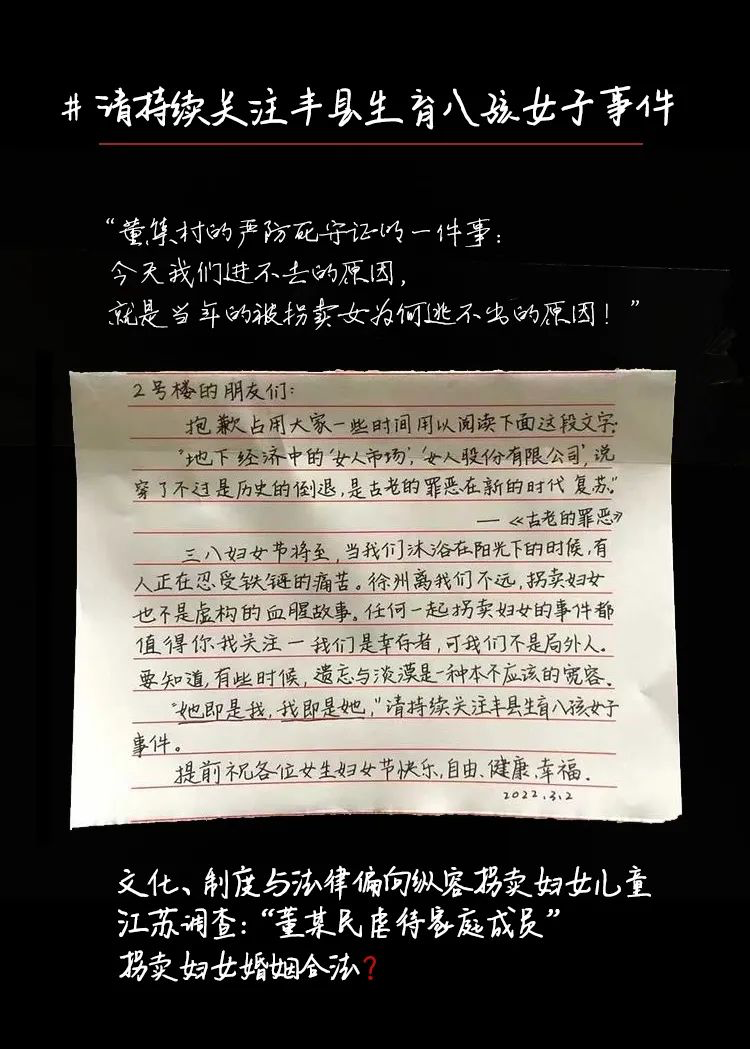 #请持续关注丰县生育八孩女子事件
“董集村的严防死守证明一件事:
今天我们进不去的原因,
就是当年的被拐卖女为何逃不出的原因!”
2号楼的朋友们:
抱歉占用大家一些时间用以阅读下面这段文字:
“地下经济中的‘女人市场’,‘女人股份有限公司’,说
穿了不过是历史的倒退,是古老的罪恶在新的时代复苏。”
—《古老的罪恶》
三八妇女节将至,当我们沐浴在阳光下的时候,有
人正在忍受铁链的痛苦。徐州离我们不远,拐卖妇女
也不是虚构的血腥故事。任何一起拐卖妇女的事件都
值得你我关注—我们是幸存者,可我们不是局外人。
要知道,有些时候,遗忘与淡漠是一种本不应该的宽容。
“她即是我,我即是她,”请持续关注丰县生育八孩女子
事件。
提前祝各位女生妇女节快乐,自由、健康、幸福.
2022.3.2
文化、制度与法律偏向纵容拐卖妇女儿童
江苏调查:“董某民虐待家庭成员”
拐卖妇女婚姻合法?